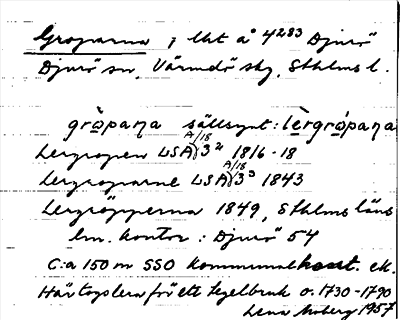 Groparna, lht å 4283 Djurö
Djurö sn, Värmdö skg, Sthlms l.
grò̤pana sällsynt: lèrgró̤pana
Lergropen LSA A/18 3² 1816-18
Lergroparne LSA A/18 3³ 1843
Lergröpperna 1849, Sthlms läns
lm. kontor: Djurö 54
C:a 150 m SSO kommunalhuset. ek.
Här togs lera för ett tegelbruk o. 1730-1790
Lena Moberg 1957